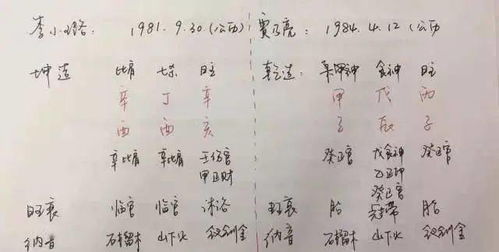 李小璐: 1981.9.30(公历) 贾乃亮: 1984.4.12(公历
坤造 比肩 七杀 日主 乾造: 枭印神 食神 日主
辛 丁 辛 甲 戊 丙
酉 酉 亥 子 辰 子
辛比肩 辛比肩 壬伤官 癸正官 戊食神 癸正官
甲正财 乙正印
癸正官
旺衰 临官 临官 沐浴 旺衰 胎 冠带 胎
纳音 石榴木 山下火 钗钏金 纳音 石榴木 山下火 钗钏金